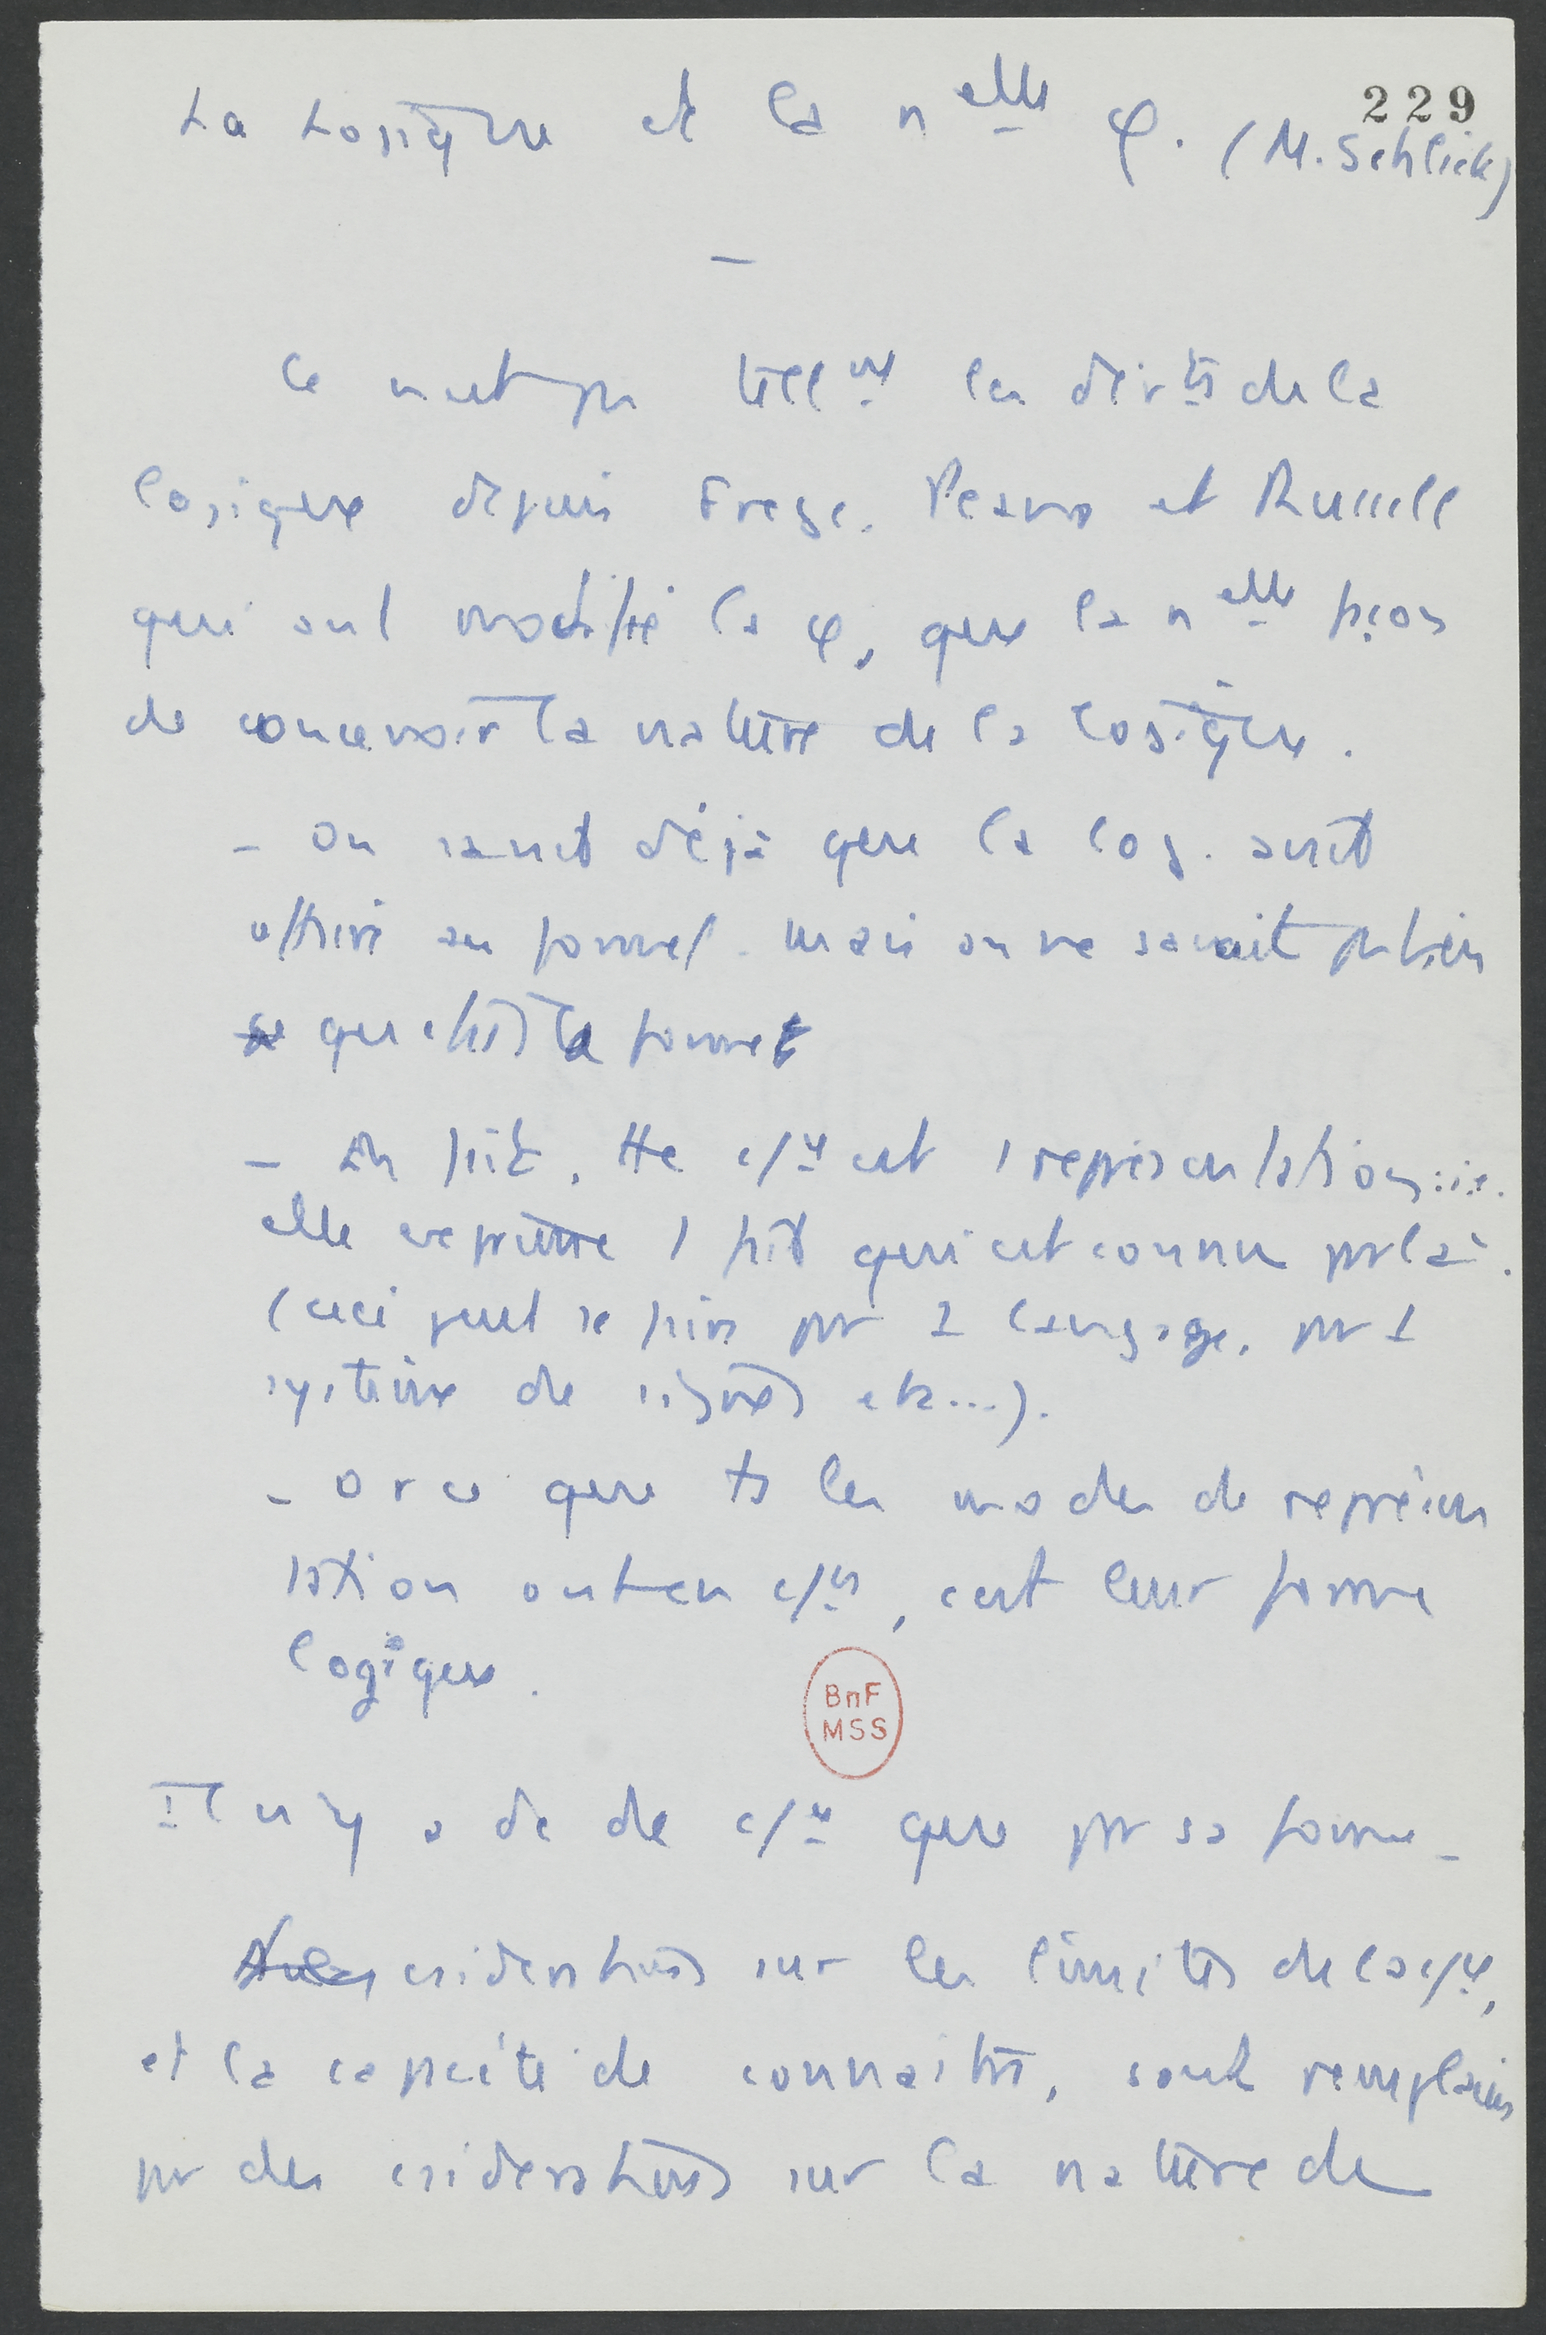 229
La Logique et la nelle φ. (M. Schlick)
—
Ce n'est pas tellmt les dévts de la
logique depuis Frege, Peano et Russell
qui ont modifié la φ, que la nelle façon
de concevoir la nature de la logique.
- On savait déjà que la log. avait
affaire au formel. Mais on ne savait pas bien
que était la forme
- En fait, tte c/ce est 1 représentation : i.e.
elle exprime 1 fait qui est connu par là.
(ceci peut se faire par 1 langage, par 1
système de signes etc...).
- Or ce que ts les modes de représen
tation ont en c/un, c'est leur forme
logique.
BnF
MSS
Il n'y a dc de c/ce que par sa forme -
csidérations sur les limites de la c/ce,
et la capacité de connaître, sont remplacées
par des csidérations sur la nature de